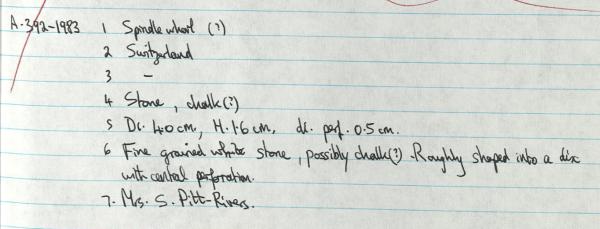 A.392-1983 1 Spindle whorl (?)
2 Switzerland
3 –
4 Stone, chalk(?)
5 Di. 4.0 cm, H. 1.6 cm, di. perf. 0.5 cm.
6 Fine grained white stone, possibly chalk(?). Roughly shaped into a disc
with central perforation.
7. Mrs. S. Pitt-Rivers.